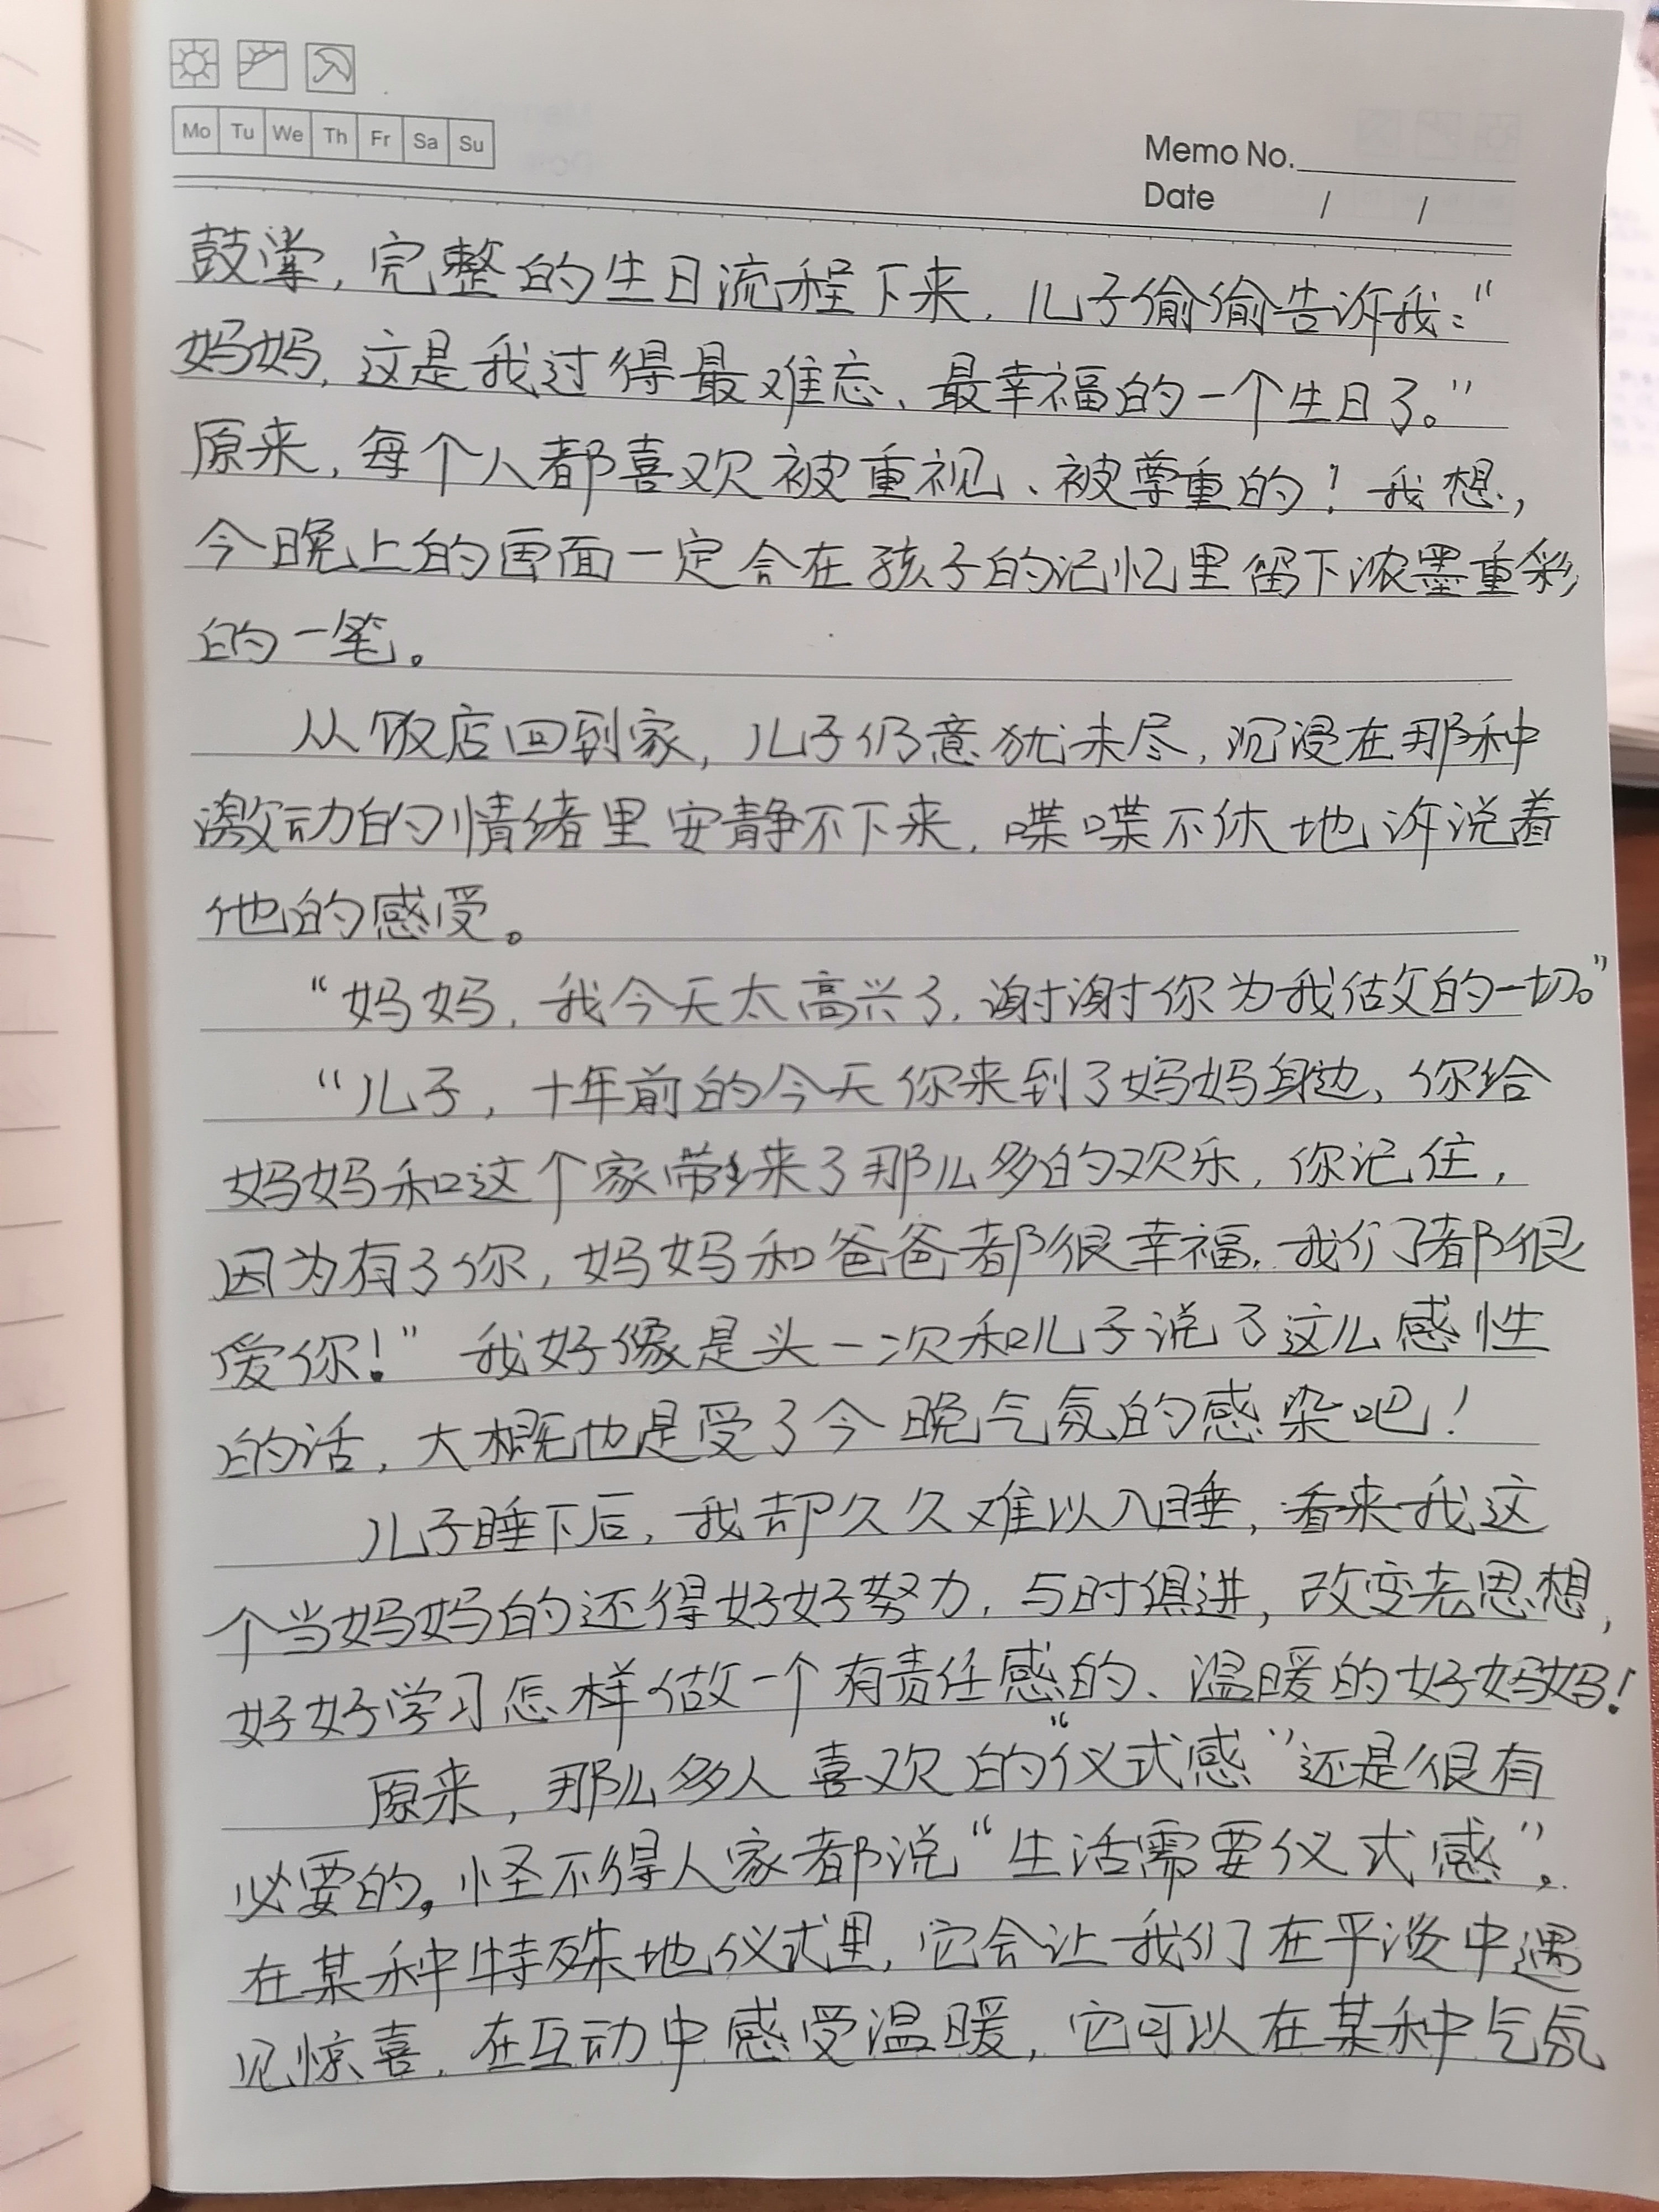 Mo Tu We Th Fr Sa Su
Memo No.
Date / /
鼓掌，完整的生日流程下来，儿子偷偷告诉我：“
妈妈，这是我过得最难忘、最幸福的一个生日了。”
原来，每个人都喜欢被重视、被尊重的！我想，
今晚上的画面一定会在孩子的记忆里留下浓墨重彩
的一笔。
从饭店回到家，儿子仍意犹未尽，沉浸在那种
激动的情绪里安静不下来，喋喋不休地诉说着
他的感受。
“妈妈，我今天太高兴了，谢谢你为我做的一切。”
“儿子，十年前的今天你来到了妈妈身边，你给
妈妈和这个家带来了那么多的欢乐，你记住，
因为有了你，妈妈和爸爸都很幸福，我们都很
爱你！”我好像是头一次和儿子说了这么感性
的话，大概也是受了今晚气氛的感染吧！
儿子睡下后，我却久久难以入睡，看来我这
个当妈妈的还得好好努力，与时俱进，改变老思想，
好好学习怎样做一个有责任感的、温暖的好妈妈！
原来，那么多人喜欢的“仪式感”还是很有
必要的。怪不得人家都说“生活需要仪式感”。
在某种特殊地仪式里，它会让我们在平淡中遇
见惊喜，在互动中感受温暖，它可以在某种气氛